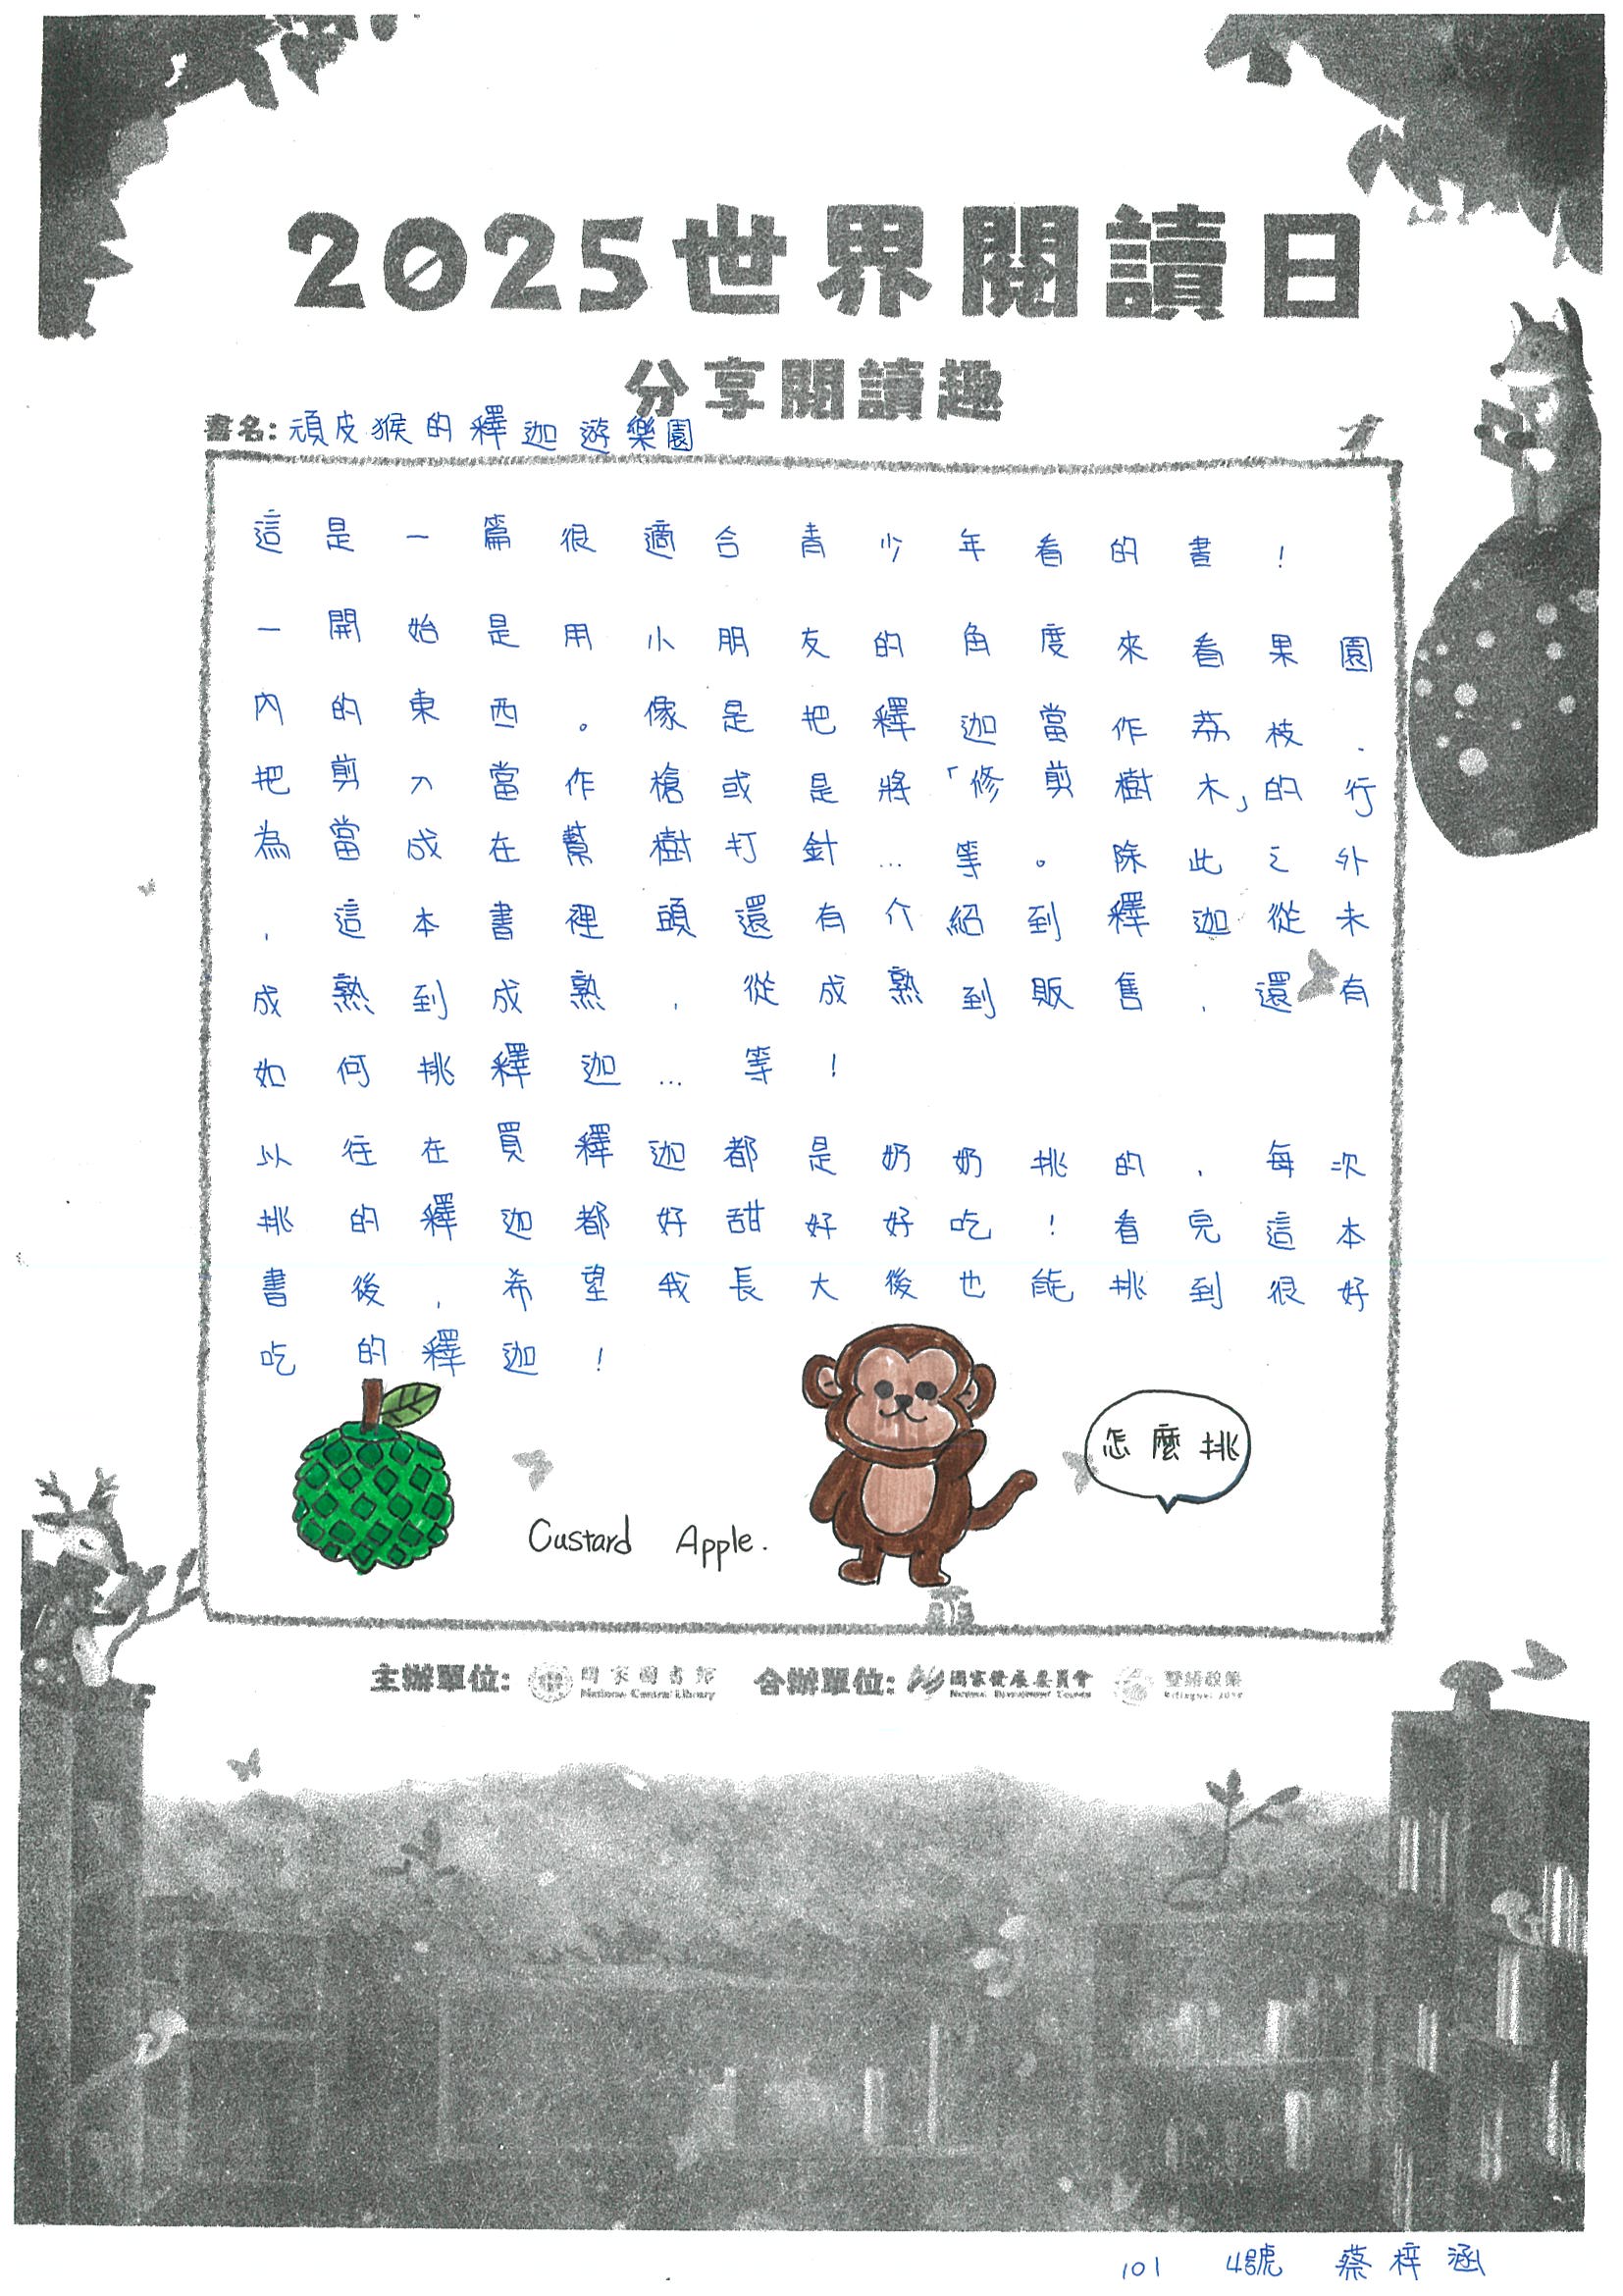 2025世界閱讀日
分享閱讀趣
書名: 頑皮猴的釋迦遊樂園
這是一篇很適合青少年看的書!
一開始是用小朋友的角度來看果園
內的東西。像是把釋迦當作荔枝、
把剪刀當作槍或是將「修剪樹木」的行
為當成在幫樹打針…等。除此之外
,這本書裡頭還有介紹到釋迦從未
成熟到成熟,從成熟到販售,還有
如何挑釋迦…等!
以往在買釋迦都是奶奶挑的,每次
挑的釋迦都好甜好好吃!看完這本
書後,希望我長大後也能挑到很好
吃的釋迦!
怎麼挑
Custard Apple.
主辦單位: 國家圖書館 National Central Library 合辦單位: 國家發展委員會 National Development Council 雙語政策
101 4號 蔡梓涵